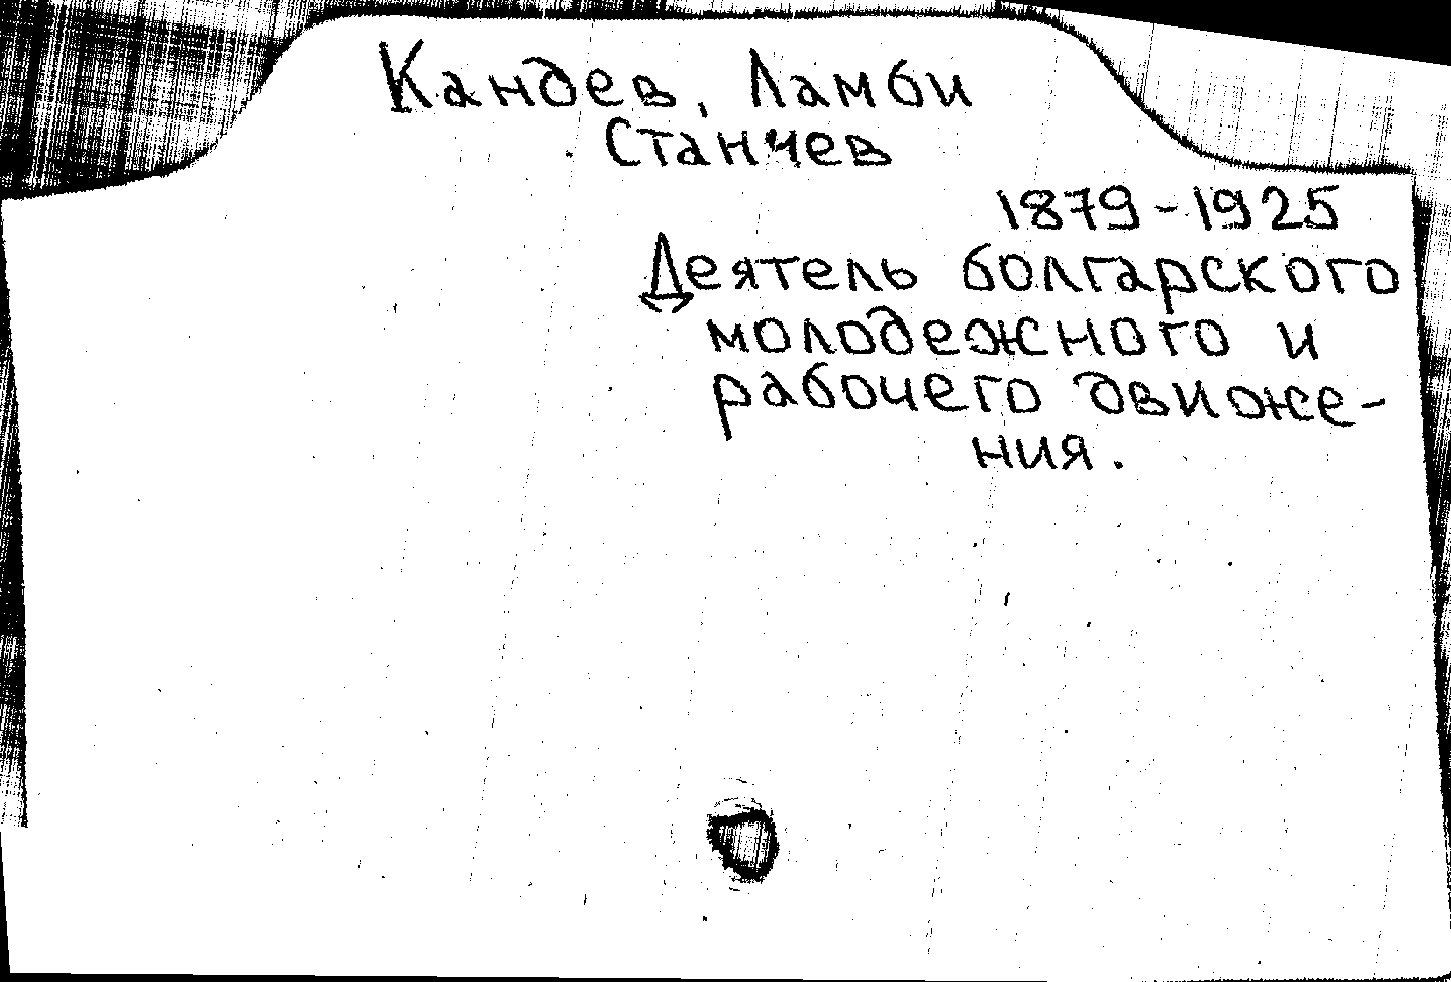 Кандев, Ламби
Станчев
1879-1925
Деятель болгарского
молодежного и
рабочего движе-
ния.